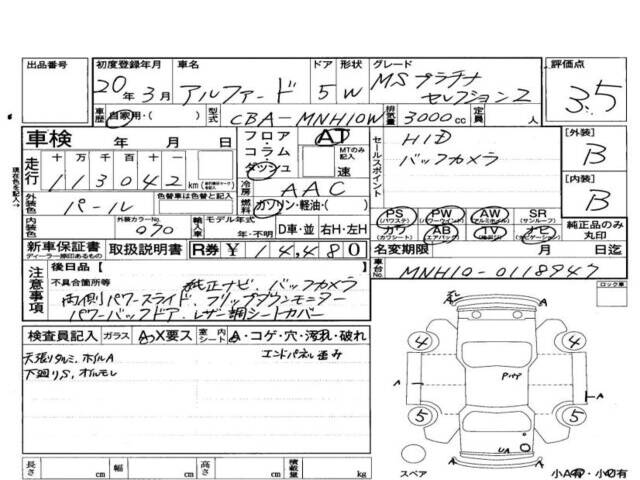 出品番号 初度登録年月 車名 ドア 形状 グレード 評価点
20年3月 アルファード 5 W MSプラチナ
セレクション2 3.5
車歴 自家用・( ) 型式 CBA-MNH10W 排気量 3000cc 定員 人
車検 年 月 日 フロア・コラム・ダッシュ AT セールスポイント HID 【外装】
MTのみ記入 速 バックカメラ B
走行 十万千百十一
113042 km 冷房 AAC 【内装】
外装色 パール 色替車は色替と記入 燃料 ガソリン・軽油・( ) B
内装色 外装カラーNo. 070 輸入車 モデル年式 年・不明 D車・並 右H・左H
PS (パワステ) PW (パワーウインド) AW (アルミホイル) SR (サンルーフ) 純正品のみ丸印
カワ (カワシート) AB (エアバッグ) TV ナビ (ナビゲーション)
新車保証書 ディーラー捺印あるもの 取扱説明書 R券 ¥14,480 名変期限 月 日迄
車台No. MNH10-0118947
注意事項 後日品【 】
不具合箇所等 純正ナビ、バックカメラ
両側パワースライド、フリップダウンモニター
パワーバックドア、レザー調シートカバー
ロック車
検査員記入 ガラス A・X要ス 室内シート A・コゲ・穴・汚れ・破れ
天張りタルミ、ホイルA エンドパネル歪み
下廻りS、オイルモレ
現在色を記入→
4 4
A A
5 5
UA
スペア 小A有・小U有
長さ cm 幅 cm 高さ cm 積載量 kg